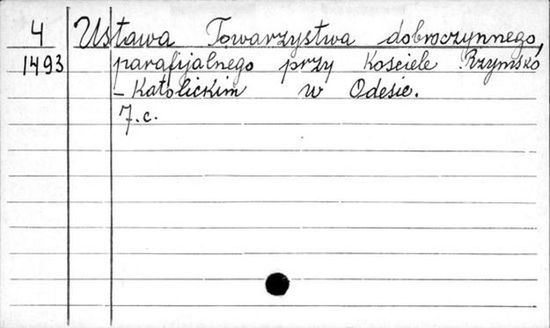 4 Ustawa Towarzystwa dobroczynnego,
1493 parafijalnego przy Kościele Rzymsko
- Katolickim w Odesie.
7.c.